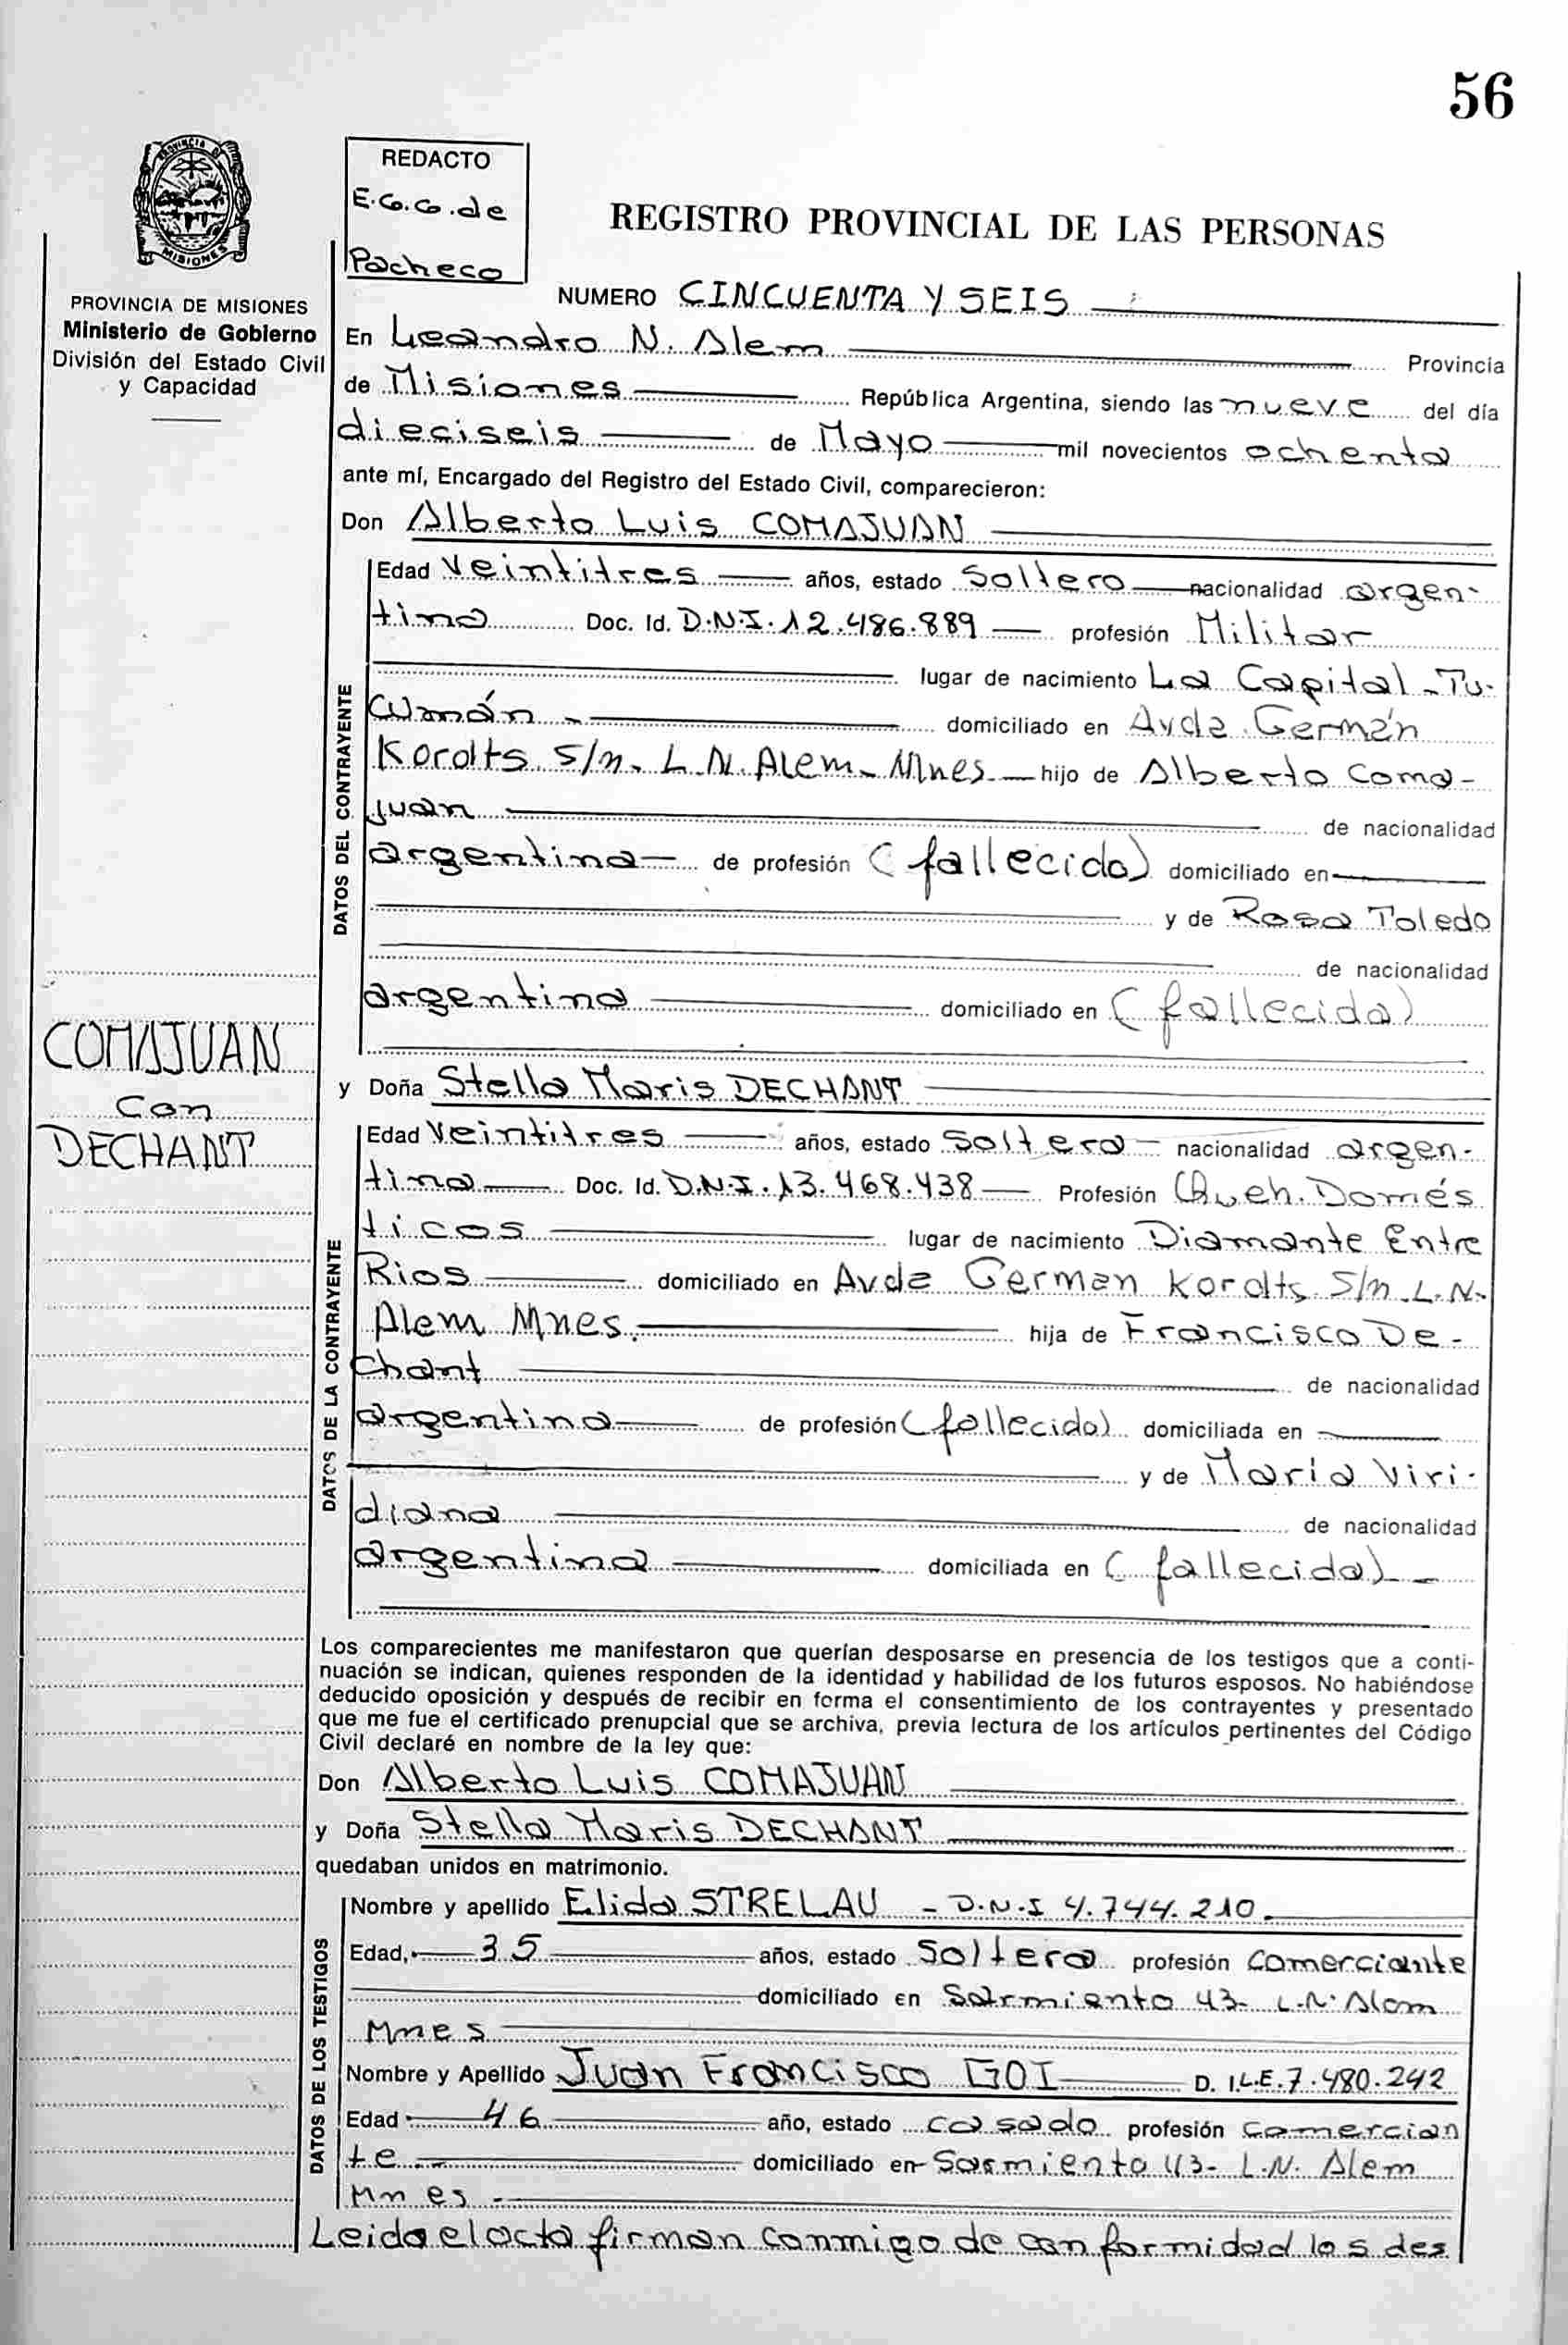 56
PROVINCIA DE MISIONES
REDACTO
E. Co. Co. de
Pacheco
REGISTRO PROVINCIAL DE LAS PERSONAS
PROVINCIA DE MISIONES
Ministerio de Gobierno
División del Estado Civil
y Capacidad
NUMERO CINCUENTA Y SEIS
En Leandro N. Alem Provincia
de Misiones República Argentina, siendo las nueve del día
dieciseis de Mayo mil novecientos ochenta
ante mí, Encargado del Registro del Estado Civil, comparecieron:
Don Alberto Luis COMAJUAN
DATOS DEL CONTRAYENTE
Edad Veintitres años, estado Soltero nacionalidad argen-
tina Doc. Id. D.N.I. 12.486.889 profesión Militar
lugar de nacimiento La Capital - Tu-
cumán - domiciliado en Avda. Germán
Kordts s/n. L.N. Alem - Mnes. hijo de Alberto Coma-
juan de nacionalidad
argentina de profesión (fallecido) domiciliado en
y de Rosa Toledo
de nacionalidad
argentina domiciliado en (fallecida)
COMAJUAN
con
DECHANT
y Doña Stella Maris DECHANT
DATOS DE LA CONTRAYENTE
Edad Veintitres años, estado Soltera nacionalidad argen-
tina Doc. Id. D.N.I. 13.468.438 Profesión Queh. Domés
ticos lugar de nacimiento Diamante Entre
Rios domiciliado en Avda German Kordts s/n. L.N.
Alem Mnes. hija de Francisco De-
chant de nacionalidad
argentina de profesión (fallecido) domiciliada en
y de María Viri-
diana de nacionalidad
argentina domiciliada en (fallecida) -
Los comparecientes me manifestaron que querían desposarse en presencia de los testigos que a conti-
nuación se indican, quienes responden de la identidad y habilidad de los futuros esposos. No habiéndose
deducido oposición y después de recibir en forma el consentimiento de los contrayentes y presentado
que me fue el certificado prenupcial que se archiva, previa lectura de los artículos pertinentes del Código
Civil declaré en nombre de la ley que:
Don Alberto Luis COMAJUAN
y Doña Stella Maris DECHANT
quedaban unidos en matrimonio.
DATOS DE LOS TESTIGOS
Nombre y apellido Elida STRELAU - D.N.I 4.744.210.
Edad, 35 años, estado Soltera profesión Comerciante
domiciliado en Sarmiento 43- L.N. Alem
Mnes
Nombre y Apellido Juan Francisco GOI D. I.L.E. 7.480.242
Edad 46 año, estado casado profesión Comercian
te. domiciliado en Sarmiento 43- L.N. Alem
Mnes
Leida el acta firman conmigo de conformidad los des